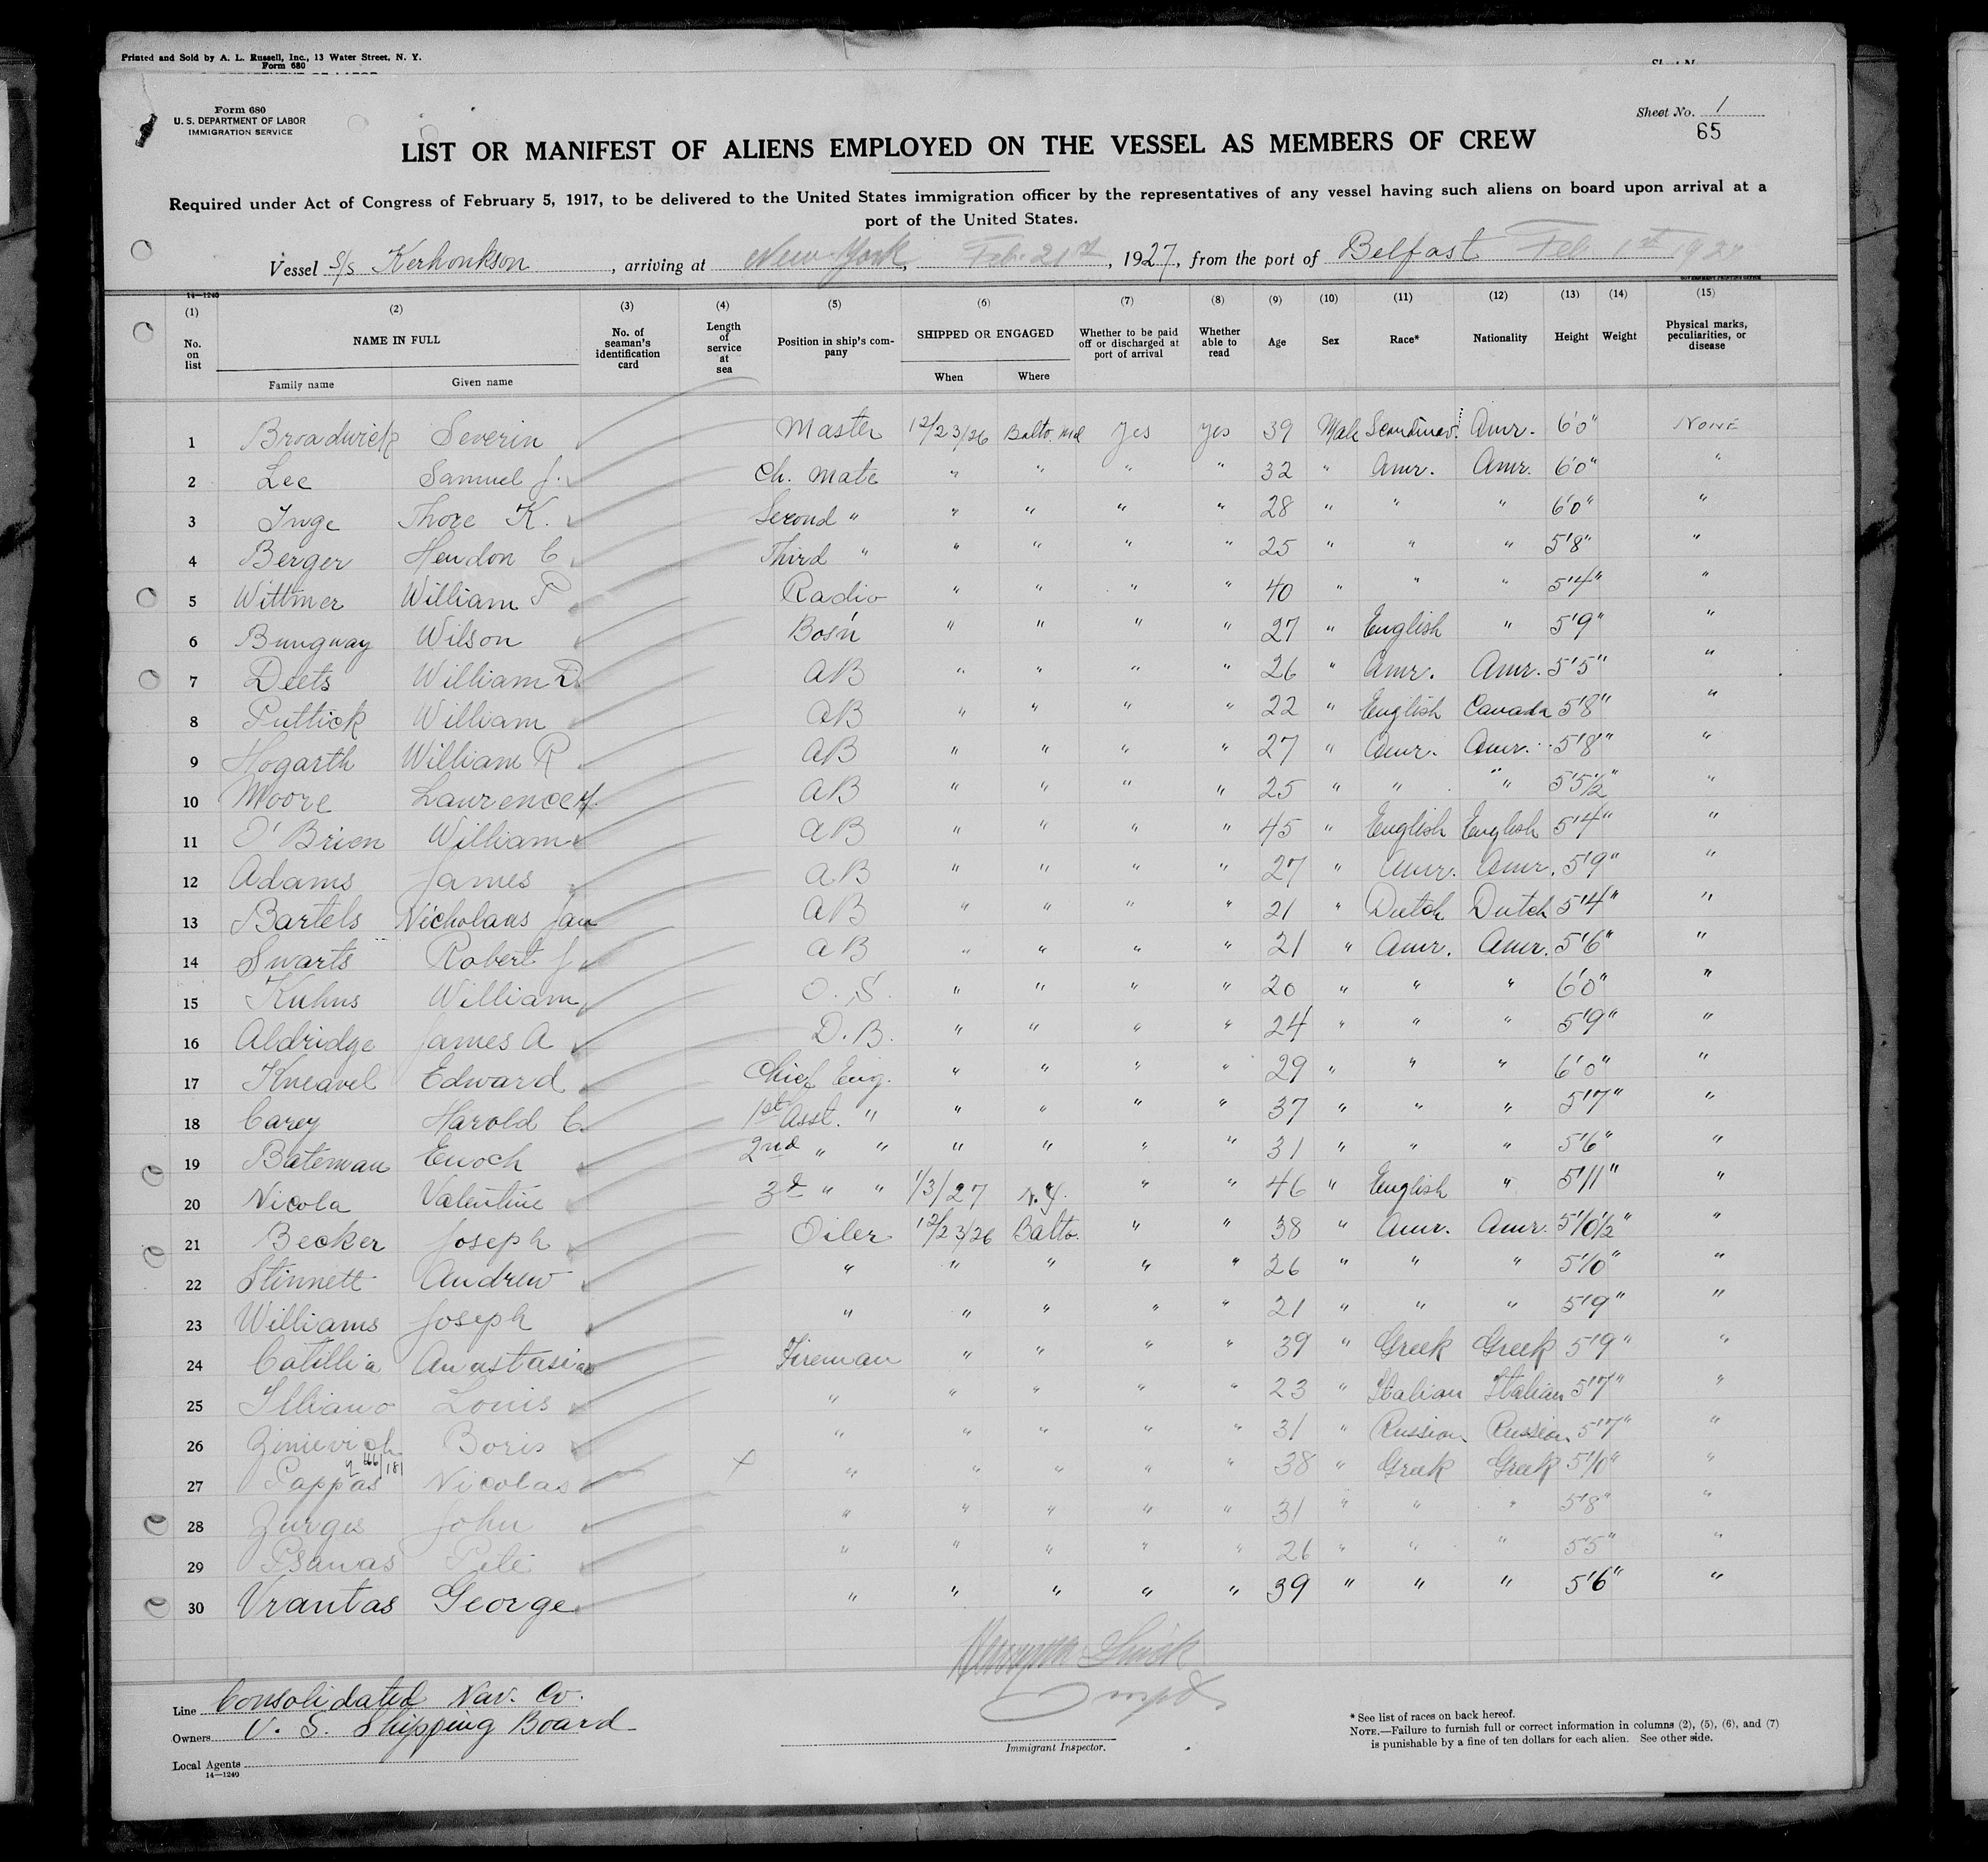 Printed and Sold by A. L. Russell, Inc., 13 Water Street, N. Y.
Form 680
Form 680
U. S. DEPARTMENT OF LABOR
IMMIGRATION SERVICE
Sheet No. 1
65
LIST OR MANIFEST OF ALIENS EMPLOYED ON THE VESSEL AS MEMBERS OF CREW
Required under Act of Congress of February 5, 1917, to be delivered to the United States immigration officer by the representatives of any vessel having such aliens on board upon arrival at a
port of the United States.
Vessel S/S Kerhonkson, arriving at New York, Feb. 21st, 1927, from the port of Belfast Feb 1st 1927
14—1240
(1) (2) (3) (4) (5) (6) (7) (8) (9) (10) (11) (12) (13) (14) (15)
No. on list NAME IN FULL No. of seaman's identification card Length of service at sea Position in ship's company SHIPPED OR ENGAGED Whether to be paid off or discharged at port of arrival Whether able to read Age Sex Race* Nationality Height Weight Physical marks, peculiarities, or disease
Family name Given name When Where
1 Broadwick Severin Master 12/23/26 Balto. Md Yes yes 39 Male Scandinav. Amr. 6'0" NONE
2 Lee Samuel J. Ch. Mate " " " " 32 " Amr. Amr. 6'0" "
3 Inge Thore K. Second " " " " " 28 " " " 6'0" "
4 Berger Hendon C Third " " " " " 25 " " " 5'8" "
5 Wittmer William P Radio " " " " 40 " " " 5'4" "
6 Bungway Wilson Bos'n " " " " 27 " English " 5'9" "
7 Deets William D. AB " " " " 26 " Amr. Amr. 5'5" "
8 Puttick William AB " " " " 22 " English Canada 5'8" "
9 Hogarth William R AB " " " " 27 " Amr. Amr. 5'8" "
10 Moore Laurence AB " " " " 25 " " " 5'5½" "
11 O'Brien William AB " " " " 45 " English English 5'4" "
12 Adams James AB " " " " 27 " Amr. Amr. 5'9" "
13 Bartels Nicholaas Jan AB " " " " 21 " Dutch Dutch 5'4" "
14 Swarts Robert J AB " " " " 21 " Amr. Amr. 5'6" "
15 Kuhns William O. S. " " " " 20 " " " 6'0" "
16 Aldridge James A D. B. " " " " 24 " " " 5'9" "
17 Kneavel Edward Chief Eng. " " " " 29 " " " 6'0" "
18 Carey Harold C. 1st Asst. " " " " " 37 " " " 5'7" "
19 Bateman Enoch 2nd " " " " " " 31 " " " 5'6" "
20 Nicola Valentine 3d " " 1/3/27 N.Y. " " 46 " English " 5'11" "
21 Becker Joseph Oiler 12/23/26 Balto. " " 38 " Amr. Amr. 5'10½" "
22 Stinnett Andrew " " " " " 26 " " " 5'10" "
23 Williams Joseph " " " " " 21 " " " 5'9" "
24 Catillia Anastasias Fireman " " " " 39 " Greek Greek 5'9" "
25 Illiano Louis " " " " " 23 " Italian Italian 5'7" "
26 Zinievich Boris " " " " " 31 " Russian Russian 5'7" "
27 Pappas Nicolas X " " " " " 38 " Greek Greek 5'10" "
28 Zurges John " " " " " 31 " " " 5'8" "
29 Psanas Pile " " " " " 26 " " " 5'5" "
30 Vrantas George " " " " " 39 " " " 5'6" "
Line Consolidated Nav. Co.
Owners U. S. Shipping Board
Local Agents
14—1240
Immigrant Inspector.
* See list of races on back hereof.
NOTE.—Failure to furnish full or correct information in columns (2), (5), (6), and (7)
is punishable by a fine of ten dollars for each alien. See other side.